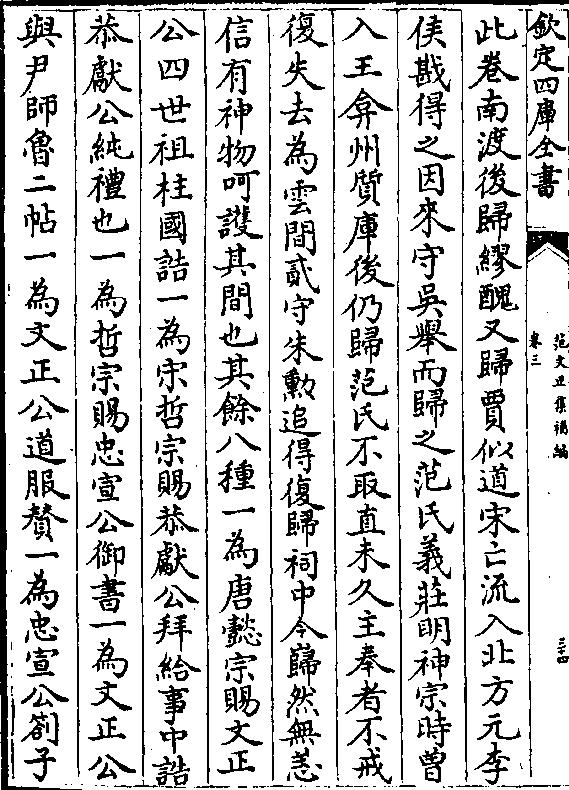 欽定四庫全書
范文正集補編
卷三
三十四
此卷南渡後歸繆醜又歸賈似道宋亡流入北方元李
侯戡得之因來守吳舉而歸之范氏義莊明神宗時曾
入王弇州質庫後仍歸范氏不取直未久主奉者不戒
復失去為雲間貳守朱勳追得復歸祠中今巋然無恙
信有神物呵護其間也其餘八種一為唐懿宗賜文正
公四世祖柱國誥一為宋哲宗賜恭獻公拜給事中誥
恭獻公純禮也一為哲宗賜忠宣公御書一為文正公
與尹師魯二帖一為文正公道服贊一為忠宣公劄子